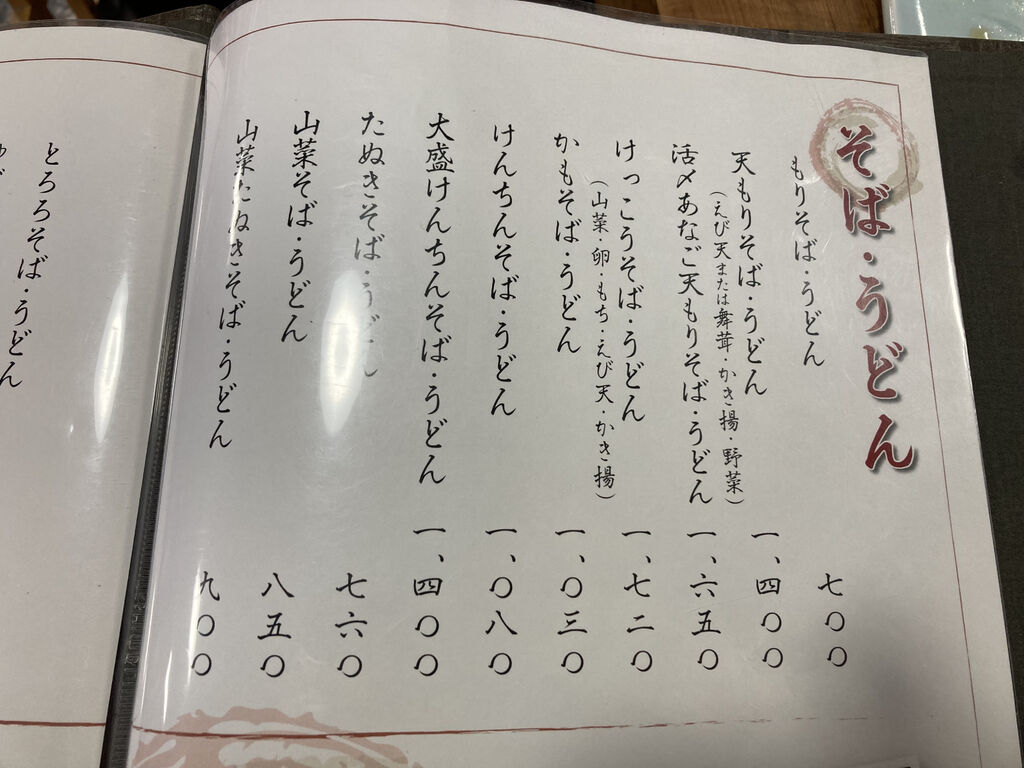 そば・うどん
もりそば・うどん 七〇〇
天もりそば・うどん 一、四〇〇
（えび天または舞茸・かき揚・野菜）
活〆あなご天もりそば・うどん 一、六五〇
けっこうそば・うどん 一、七二〇
（山菜・卵・もち・えび天・かき揚）
かもそば・うどん 一、〇三〇
けんちんそば・うどん 一、〇八〇
大盛けんちんそば・うどん 一、四〇〇
たぬきそば・うどん 七六〇
山菜そば・うどん 八五〇
山菜たぬきそば・うどん 九〇〇
とろろそば・うどん